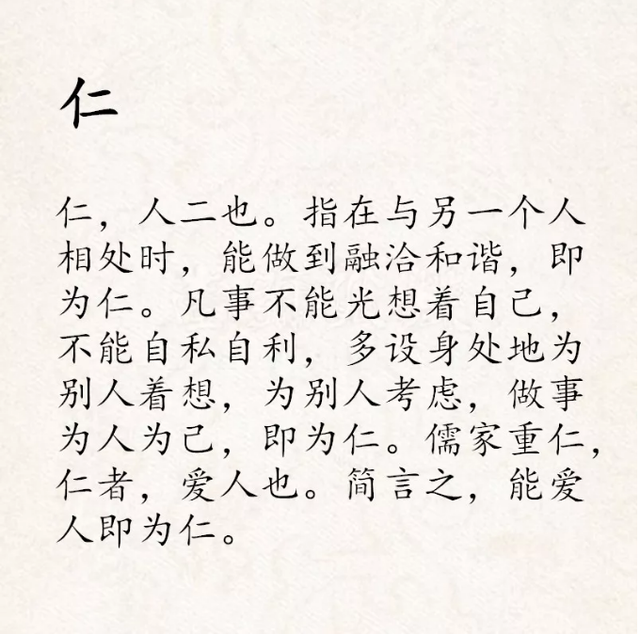 仁
仁，人二也。指在与另一个人
相处时，能做到融洽和谐，即
为仁。凡事不能光想着自己，
不能自私自利，多设身处地为
别人着想，为别人考虑，做事
为人为己，即为仁。儒家重仁，
仁者，爱人也。简言之，能爱
人即为仁。